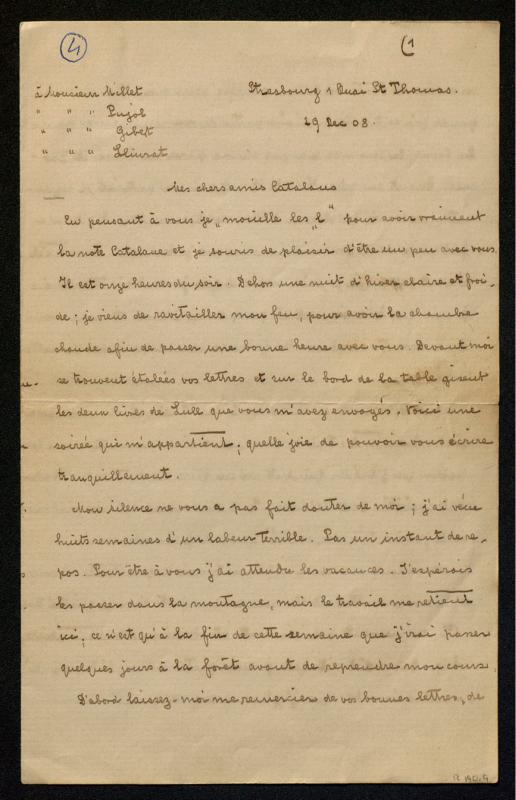 4
(1
à Monsieur Millet
" " " Pujol
" " " Gibert
" " " Llíurat
Strasbourg 1 Quai St Thomas.
29 Dec 08.
Mes chers amis Catalans
En pensant à vous je „mouille les „l" pour avoir vraiment
la note Catalane et je souris de plaisir d'être un peu avec vous.
Il est onze heures du soir. Dehors une nuit d'hiver claire et froi-
de; je viens de ravitailler mon feu, pour avoir la chambre
chaude afin de passer une bonne heure avec vous. Devant moi
se trouvent étalées vos lettres et sur le bord de la table gisent
les deux livres de Lull que vous m'avez envoyés. Voici une
soirée qui m'appartient; quelle joie de pouvoir vous écrire
tranquillement.
Mon silence ne vous a pas fait douter de moi; j'ai vécu
huit semaines d'un labeur terrible. Pas un instant de re-
pos. Pour être à vous j'ai attendu les vacances. J'espérais
les passer dans la montagne, mais le travail me retient
ici; ce n'est qu'à la fin de cette semaine que j'irai passer
quelques jours à la forêt avant de reprendre mon cours
D'abord laissez-moi me remercier de vos bonnes lettres, de